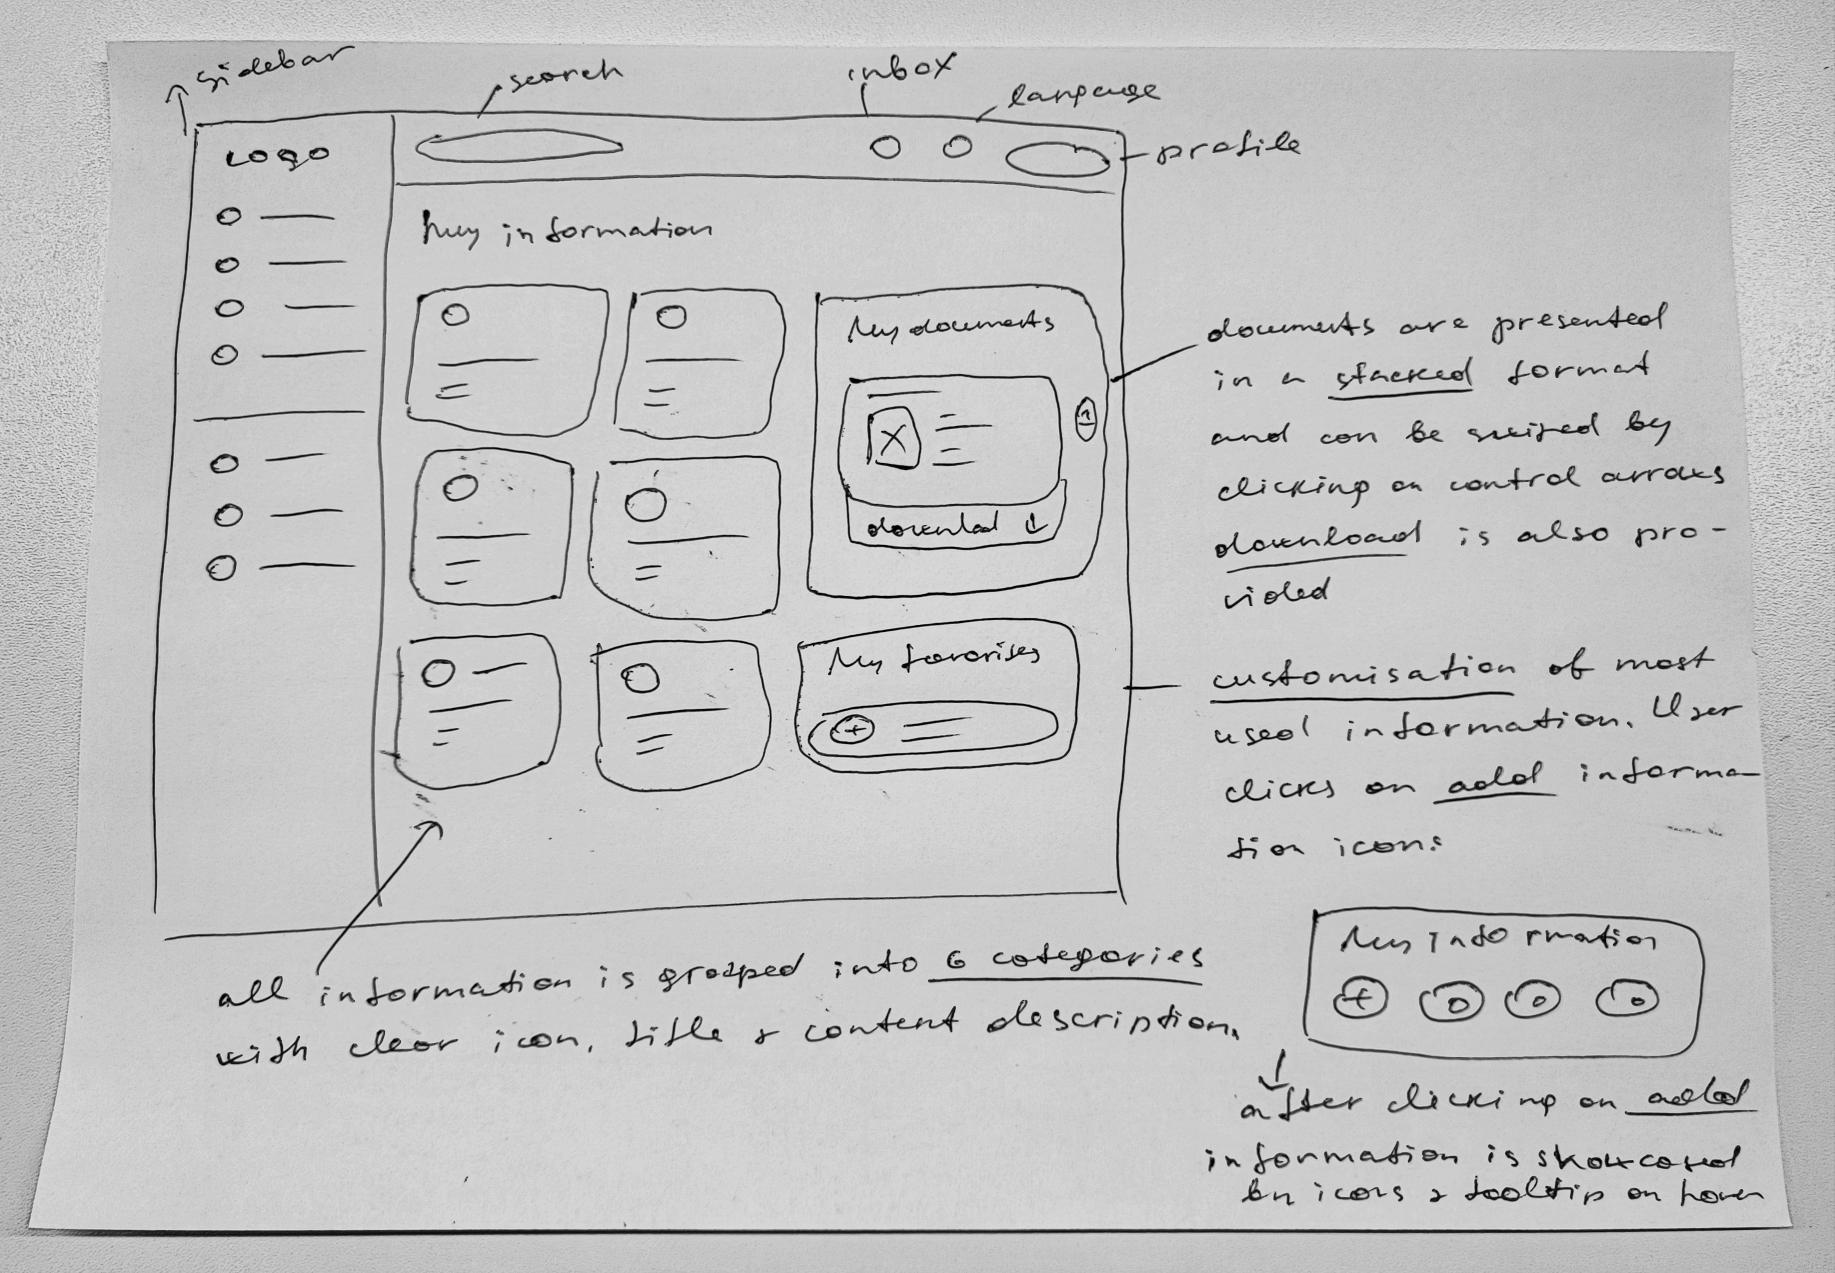 sidebar
search
inbox
language
profile
LOGO
My information
My documents
download
My favorites
documents are presented
in a stacked format
and can be swiped by
clicking on control arrows
download is also pro-
vided
customisation of most
used information. User
clicks on add informa-
tion icon:
My information
after clicking on add
information is showcased
by icons & tooltip on hover
all information is grouped into 6 categories
with clear icon, title & content description.